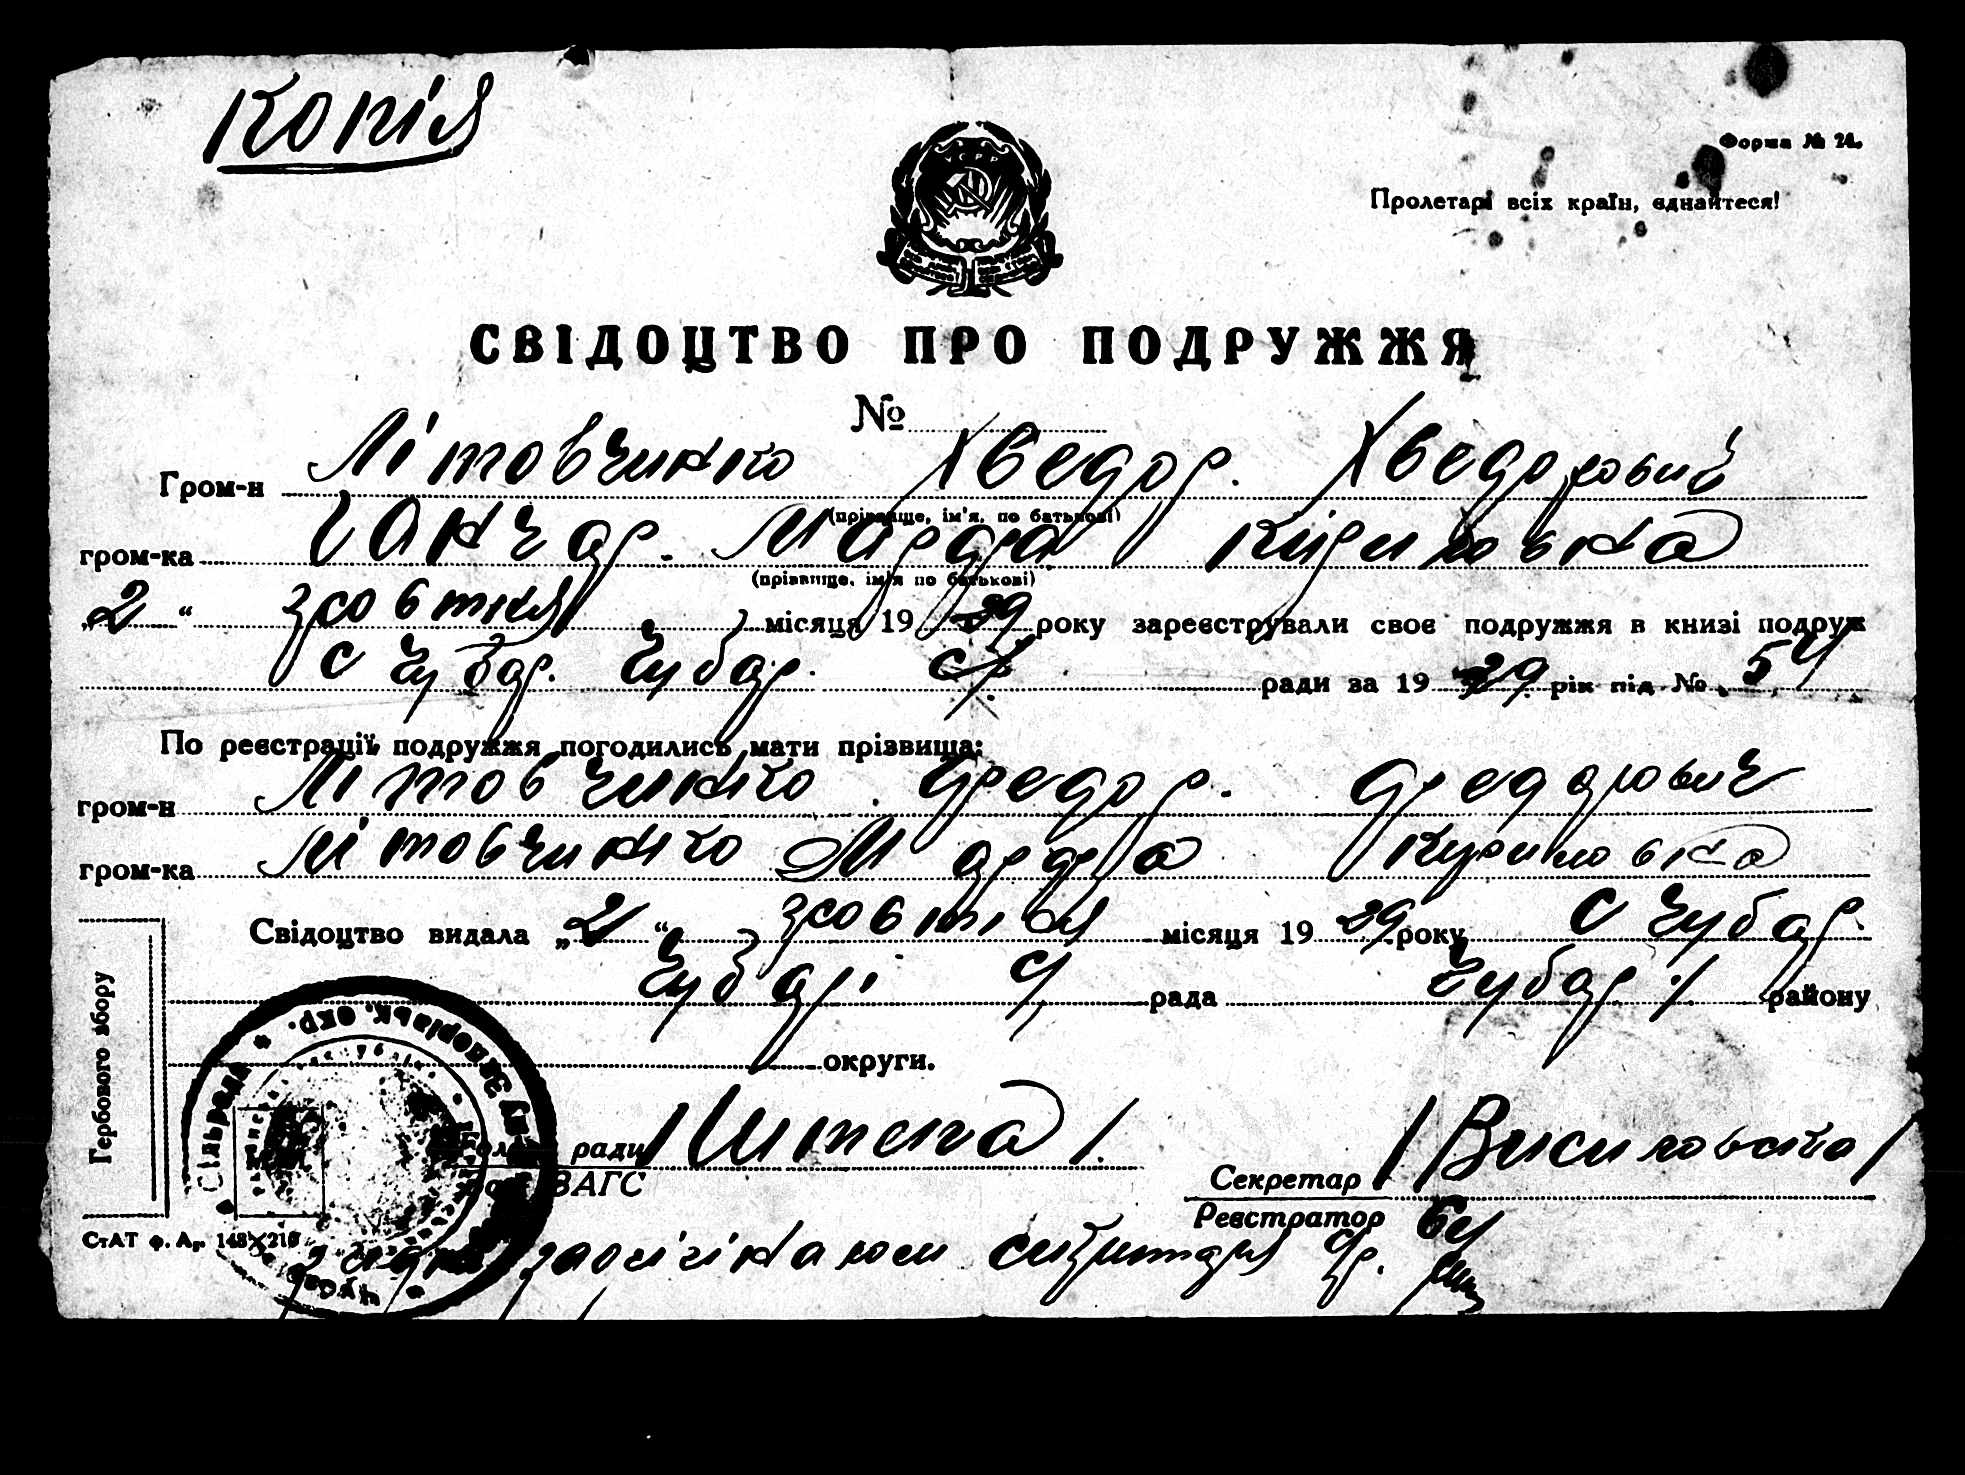 Копія
Форма № 24.
Пролетарі всіх країн, єднайтеся!
СВІДОЦТВО ПРО ПОДРУЖЖЯ
№
Гром-н Літовчинко Хведор. Хведорович
(прізвище, ім'я, по батькові)
гром-ка Мардя Кириловна
(прізвище, ім'я по батькові)
„2“ жовтня місяця 1929 року зареєстрували своє подружжя в книзі подруж
с Чубар. Чубар. с/ ради за 1929 рік під № 54
По реєстрації подружжя погодились мати прізвища:
гром-н Літовчинко Федор. Федорович
гром-ка Літовчинко Марфа Кириловна
Свідоцтво видала „2“ жовтня місяця 1929 року с Чубар.
Чубарі с/ рада Чубар. / району
округи.
Гербового збору
Сільрада * Запорізьк. окр.
ради /Штепа/.
ЗАГС
Секретар /Висиловська/
Реєстратор
СтАТ ф. А₅. 148×210